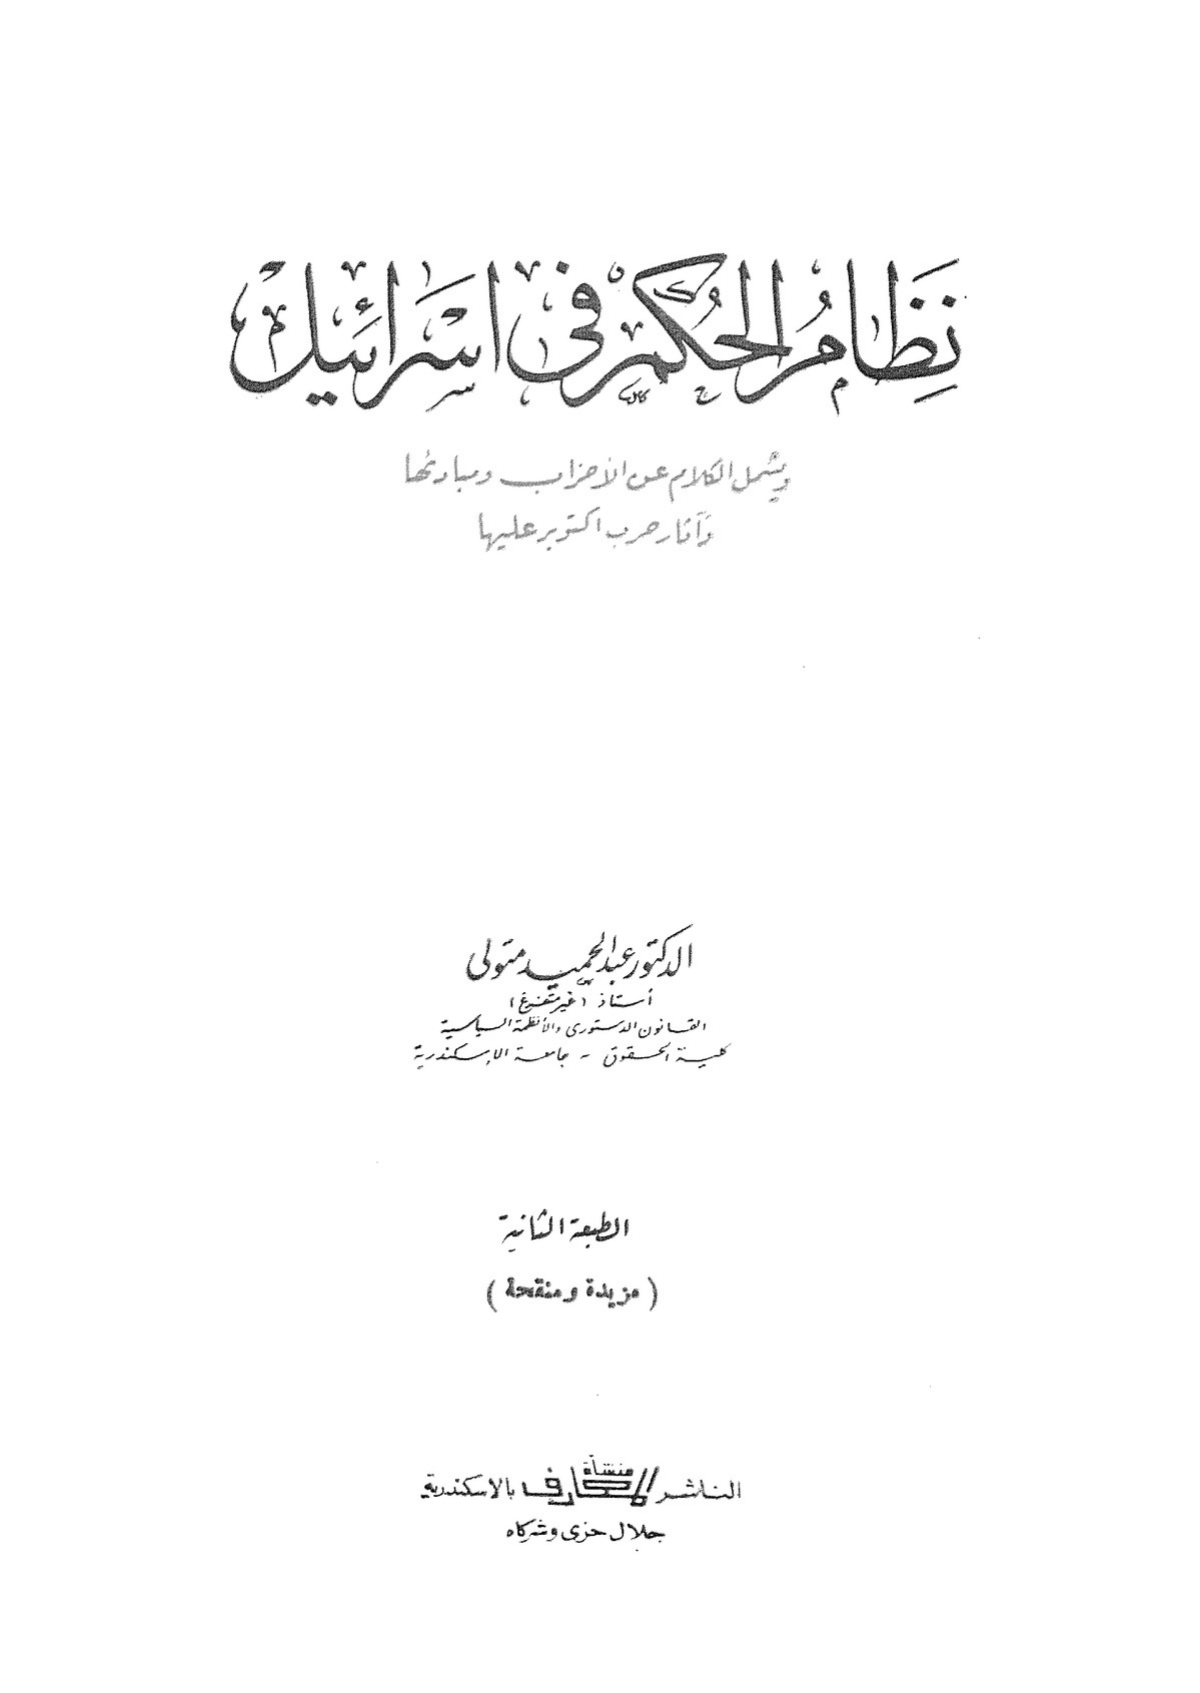 نظام الحكم فى اسرائيل
ويشمل الكلام عن الأحزاب ومبادئها
وآثار حرب اكتوبر عليها
الدكتور عبد الحميد متولى
أستاذ (غير متفرغ)
القانون الدستورى والأنظمة السياسية
كلية الحقوق - جامعة الإسكندرية
الطبعة الثانية
(مزيدة ومنقحة)
الناشر منشأة المعارف بالاسكندرية
جلال حزى وشركاه